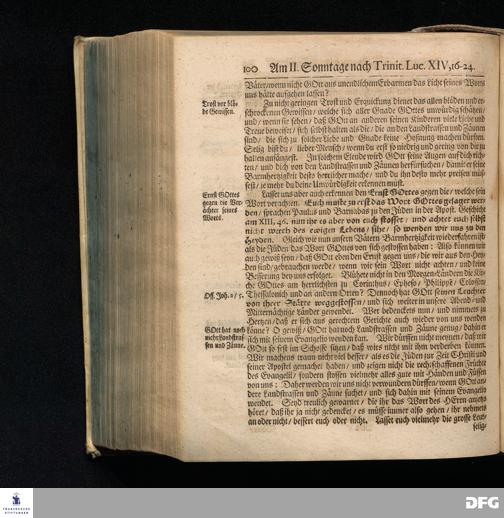 100 Am II. Sonntage nach Trinit. Luc. XIV, 16-24.
Väter/ wenn nicht GOtt aus unendlichem Erbarmen das Licht seines Worts
uns hätte aufgehen lassen?
Trost vor blö-
de Gewissen.
Zu nicht geringen Trost und Erquickung dienet das allen blöden und er-
schrockenen Gewissen/ welche sich aller Gnade GOttes unwürdig schätzen/
und/ wenn sie sehen/ daß GOtt an anderen seinen Kindern viele Liebe und
Treue beweiset/ sich selbst halten als die/ die an den Landstrassen und Zäunen
sind/ die sich zu solcher Liebe und Gnade keine Hofnung machen dürffen.
Selig bist du/ lieber Mensch/ wenn du erst so niedrig und gering von dir zu
halten anfängest. In solchem Elende wird GOtt seine Augen auf dich rich-
ten/ und dich von den Landstrassen und Zäunen herfür suchen/ damit er seine
Barmhertzigkeit desto herrlicher mache/ und du ihn desto mehr preisen müs-
sest/ je mehr du deine Unwürdigkeit erkennen must.
Ernst GOttes
gegen die Ver-
ächter seines
Worts.
Lasset uns aber auch erkennen den Ernst GOttes gegen die/ welche sein
Wort verachten. Euch muste zu erst das Wort GOttes gesaget wer-
den/ sprachen Paulus und Barnabas zu den Jüden in der Apost. Geschicht
am XIII, 46. nun ihr es aber von euch stosset/ und achtet euch selbst
nicht werth des ewigen Lebens/ sihe/ so wenden wir uns zu den
Heyden. Gleich wie nun unsern Vätern Barmhertzigkeit wiederfahren ist/
als die Jüden das Wort GOttes von sich gestossen haben: Also können wir
auch gewiß seyn/ daß GOtt eben den Ernst gegen uns/ die wir aus den Hey-
den sind/ gebrauchen werde/ wenn wir sein Wort nicht achten/ und keine
Besserung bey uns erfolget. Blühete nicht in den Morgen-Ländern die Kir-
che GOttes am herrlichsten zu Corinthus/ Epheso/ Philippis/ Colossis/
Off. Joh. 2/ 5.
Thessalonich und an andern Orten? Dennoch hat GOtt seinen Leuchter
von ihrer Stätte weggestossen/ und sich weiter in unsere Abend- und
Mitternächtige Länder gewendet. Wer bedencket es nun/ und nimmet es zu
Hertzen/ daß er sich aus gerechtem Gerichte auch wieder von uns wenden
GOtt hat noch
mehr Landstras-
sen und Zäune.
könne? O gewiß/ GOtt hat noch Landstrassen und Zäune genug/ dahin er
sich mit seinem Evangelio wenden kan. Wir dürffen nicht meynen/ daß wir
GOtt so fest im Schosse sitzen/ daß wirs nicht mit ihm verderben können.
Wir machens wann nicht viel besser/ als es die Jüden zur Zeit Christi und
seiner Apostel gemachet haben/ und zeigen nicht die rechtschaffenen Früchte
des Evangelii/ sondern stossen vielmehr alles gute mit Händen und Füssen
von uns: Daher werden wir uns nicht verwundern dürffen/ wenn GOtt an-
dere Landstrassen und Zäune suchet/ und sich dahin mit seinem Evangelio
wendet. Seyd treulich gewarnet/ die ihr das Wort des HErrn Langens
höret/ daß ihr ja nicht gedencket/ es müsse immer also gehen/ ihr nehmets
an oder nicht/ bessert euch oder nicht. Lasset euch vielmehr die grosse Leut-
selig-
FRANCKESCHE
STIFTUNGEN
DFG